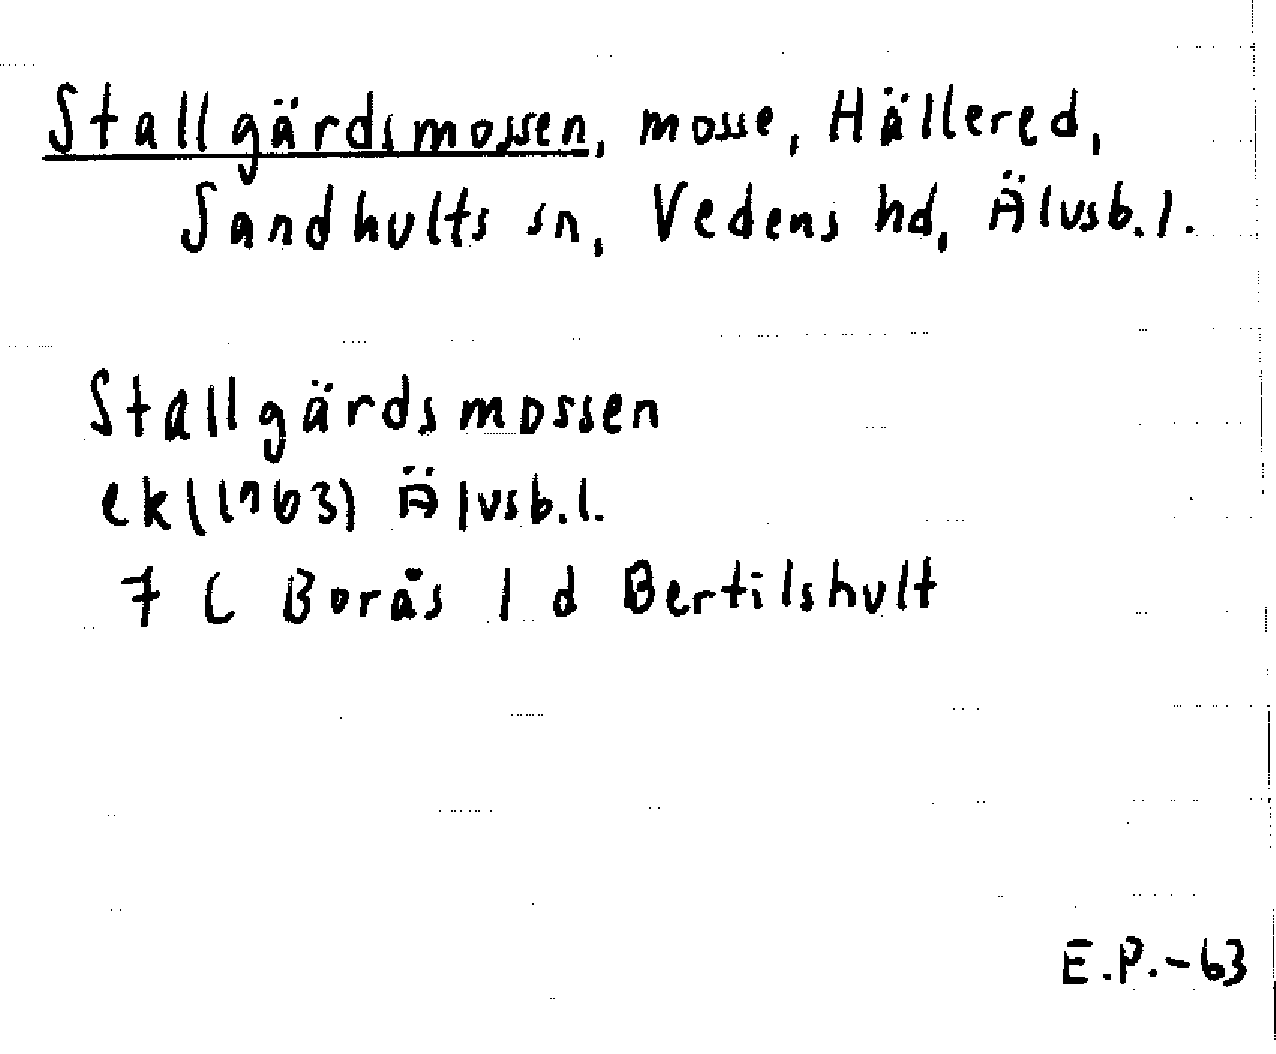 Stallgärdsmossen, mosse, Hällered,
Sandhults sn, Vedens hd, Älvsb. l.
Stallgärdsmossen
ek (1963) Älvsb. l.
7 C Borås 1 d Bertilshult
E.P.-63